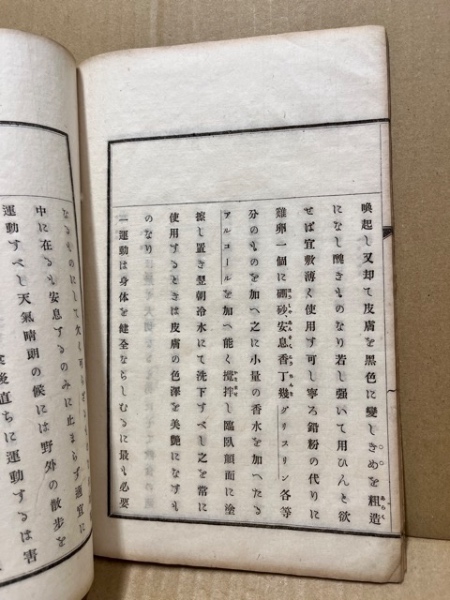 喚起し又却て皮膚を黒色に變しきめを粗造
になし醜きものなり若し强いて用ひんと欲
せば宜敷薄く使用す可し寧ろ鉛粉の代りに
雞卵一個に硼砂安息香丁幾グリスリン各等
分のものを加へ之に小量の香水を加へたる
アルコールを加へ能く攪拌し臨臥顔面に塗
擦し置き翌朝冷水にて洗下すべし之を常に
使用するときは皮膚の色澤を美艶になすも
のなり
一運動は身体を健全ならしむるに最も必要
なるものにして
中に在るも安息するのみに止まらず適宜に
運動すべし天氣晴朗の候には野外の散歩を
後直ちに運動するは害